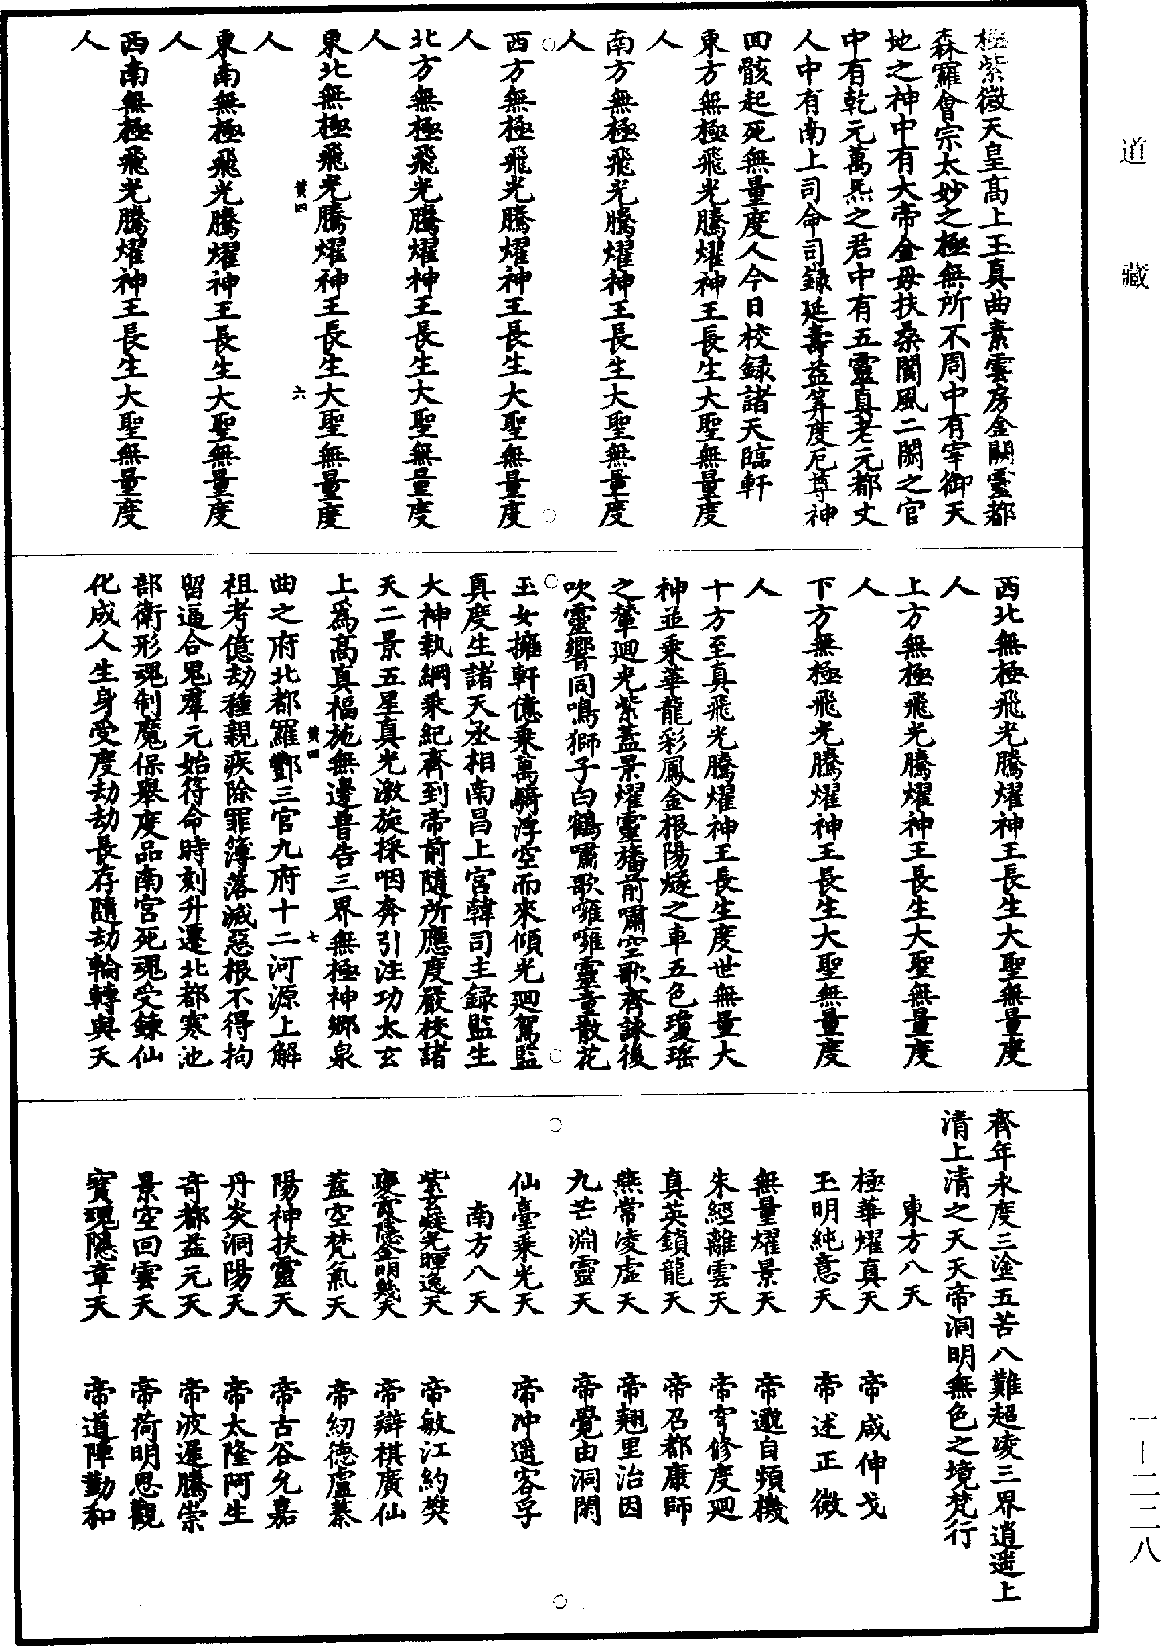 極紫微天皇高上玉真曲素雲房金闕靈都
森羅會宗太妙之極無所不周中有宰御天
地之神中有大帝金母扶桑閬風二闕之官
中有乾元萬炁之君中有五靈真老元都丈
人中有南上司命司錄延壽益筭度厄尊神
回骸起死無量度人今日校錄諸天臨軒
東方無極飛光騰耀神王長生大聖無量度
人
南方無極飛光騰耀神王長生大聖無量度
人
西方無極飛光騰耀神王長生大聖無量度
人
北方無極飛光騰耀神王長生大聖無量度
人
東北無極飛光騰耀神王長生大聖無量度
黄四 六
人
東南無極飛光騰耀神王長生大聖無量度
人
西南無極飛光騰耀神王長生大聖無量度
人
西北無極飛光騰耀神王長生大聖無量度
人
上方無極飛光騰耀神王長生大聖無量度
人
下方無極飛光騰耀神王長生大聖無量度
人
十方至真飛光騰耀神王長生度世無量大
神並乘華龍彩鳳金根陽燧之車五色瓊瑤
之輦迴光紫蓋景耀靈旛前嘯空歌齊詠後
吹靈響同鳴獅子白鶴嘯歌嗈嗈靈童散花
玉女擁軒億乘萬騎浮空而來傾光迴駕監
真度生諸天丞相南昌上宮韓司主錄監生
大神執綱乘紀齊到帝前隨所應度嚴校諸
天二景五星真光激旋採咽奔引注功太玄
上爲高真福施無邊普告三界無極神鄉泉
黄四 七
曲之府北都羅酆三官九府十二河源上解
祖考億劫種親疾除罪簿落滅惡根不得拘
留逼合鬼羣元始符命時刻升遷北都寒池
部衛形魂制魔保舉度品南宮死魂受鍊仙
化成人生身受度劫劫長存隨劫輪轉與天
齊年永度三塗五苦八難超凌三界逍遥上
清上清之天天帝洞明無色之境梵行
東方八天
極華耀真天 帝咸伸戈
玉明純意天 帝述正微
無量耀景天 帝邀自頻機
朱經離雲天 帝穹修度迴
真英鎖龍天 帝召都康師
熊常凌虛天 帝翹里治因
九芒淵靈天 帝覺由洞閑
仙臺乘光天 帝冲遥客孚
南方八天
紫玄燧光暉逸天 帝敏江約樊
帝辯棋廣仙
蓋空梵氣天 帝紉德盧綦
陽神扶靈天 帝古谷允嘉
丹炎洞陽天 帝太隆阿生
奇都益元天 帝波暹騰崇
景空回雲天 帝荷明恩觀
寶現隱章天 帝道陣勤和
道藏
一—二二八